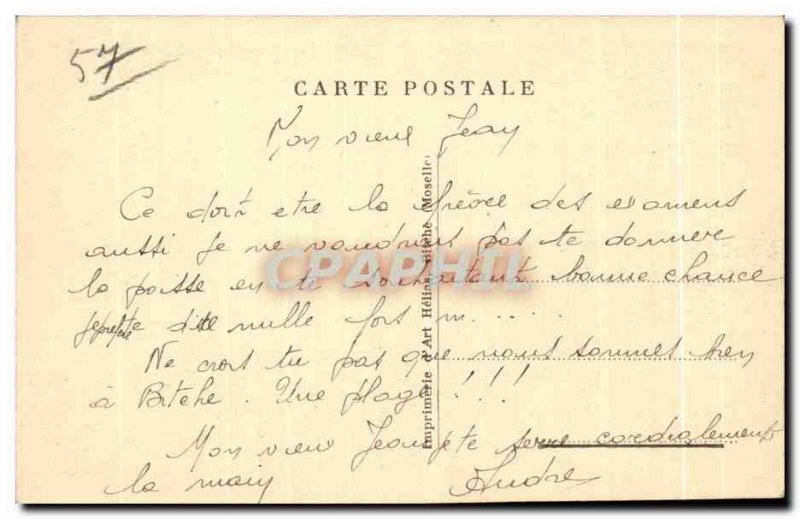 57
CARTE POSTALE
Mon vieux Jean
Ce doit etre la fièvre des examens
aussi je ne voudrais pas te donner
la poisse en te souhaitant bonne chance
je prefere dire mille fois m.....
Ne crois tu pas que nous sommes bien
à Bitche. Une plage !!!
Mon vieux Jean je te serre cordialement
la main André
Imprimerie d'Art Hélios, Bitche (Moselle)
CPAPHIL